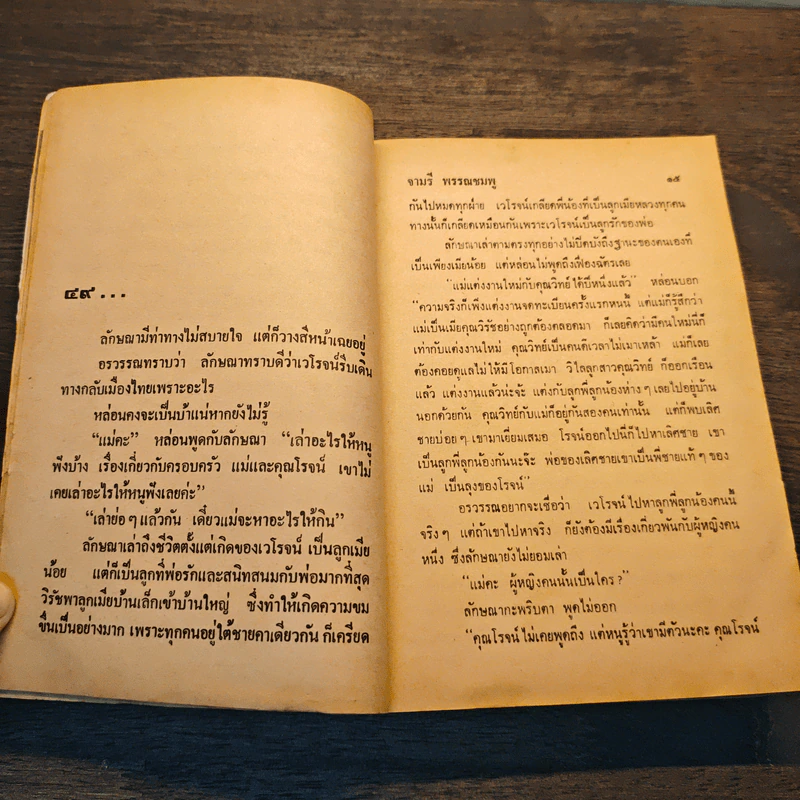 ๔๙...
ลักษณามีท่าทางไม่สบายใจ แต่ก็วางสีหน้าเฉยอยู่
อรวรรณทราบว่า ลักษณาทราบดีว่าเวโรจน์รีบเดิน
ทางกลับเมืองไทยเพราะอะไร
หล่อนคงจะเป็นบ้าแน่หากยังไม่รู้
“แม่คะ” หล่อนพูดกับลักษณา “เล่าอะไรให้หนู
ฟังบ้าง เรื่องเกี่ยวกับครอบครัว แม่และคุณโรจน์ เขาไม่
เคยเล่าอะไรให้หนูฟังเลยค่ะ”
“เล่าย่อๆ แล้วกัน เดี๋ยวแม่จะหาอะไรให้กิน”
ลักษณาเล่าถึงชีวิตตั้งแต่เกิดของเวโรจน์ เป็นลูกเมีย
น้อย แต่ก็เป็นลูกที่พ่อรักและสนิทสนมกับพ่อมากที่สุด
วิรัชพาลูกเมียบ้านเล็กเข้าบ้านใหญ่ ซึ่งทำให้เกิดความขม
ขื่นเป็นอย่างมาก เพราะทุกคนอยู่ใต้ชายคาเดียวกัน ก็เครียด
จามรี พรรณชมพู ๑๕
กันไปหมดทุกฝ่าย เวโรจน์เกลียดพี่น้องที่เป็นลูกเมียหลวงทุกคน
ทางนั้นก็เกลียดเหมือนกันเพราะเวโรจน์เป็นลูกรักของพ่อ
ลักษณาเล่าตามตรงทุกอย่างไม่บิดบังถึงฐานะของตนเองที่
เป็นเพียงเมียน้อย แต่หล่อนไม่พูดถึงเฟื่องฉัตรเลย
“แม่แต่งงานใหม่กับคุณวิทย์ได้ปีหนึ่งแล้ว” หล่อนบอก
“ความจริงก็เพิ่งแต่งงานจดทะเบียนครั้งแรกหนนี้ แต่แม่ก็รู้สึกว่า
แม่เป็นเมียคุณวิรัชอย่างถูกต้องตลอดมา ก็เลยคิดว่ามีคนใหม่นี่ก็
เท่ากับแต่งงานใหม่ คุณวิทย์เป็นคนดีเวลาไม่เมาเหล้า แม่ก็เลย
ต้องคอยดูแลไม่ให้มีโอกาสเมา วิไลลูกสาวคุณวิทย์ ก็ออกเรือน
แล้ว แต่งงานแล้วน่ะจ้ะ แต่งกับลูกพี่ลูกน้องห่างๆ เลยไปอยู่บ้าน
นอกด้วยกัน คุณวิทย์กับแม่ก็อยู่กันสองคนเท่านั้น แต่ก็พบเลิศ
ชายบ่อยๆ เขามาเยี่ยมเสมอ โรจน์ออกไปนี่ก็ไปหาเลิศชาย เขา
เป็นลูกพี่ลูกน้องกันนะจ๊ะ พ่อของเลิศชายเขาเป็นพี่ชายแท้ๆ ของ
แม่ เป็นลุงของโรจน์”
อรวรรณอยากจะเชื่อว่า เวโรจน์ไปหาลูกพี่ลูกน้องคนนี้
จริงๆ แต่ถ้าเขาไปหาจริง ก็ยังต้องมีเรื่องเกี่ยวพันกับผู้หญิงคน
หนึ่ง ซึ่งลักษณายังไม่ยอมเล่า
“แม่คะ ผู้หญิงคนนั้นเป็นใคร?”
ลักษณากะพริบตา พูดไม่ออก
“คุณโรจน์ไม่เคยพูดถึง แต่หนูรู้ว่าเขามีตัวนะคะ คุณโรจน์